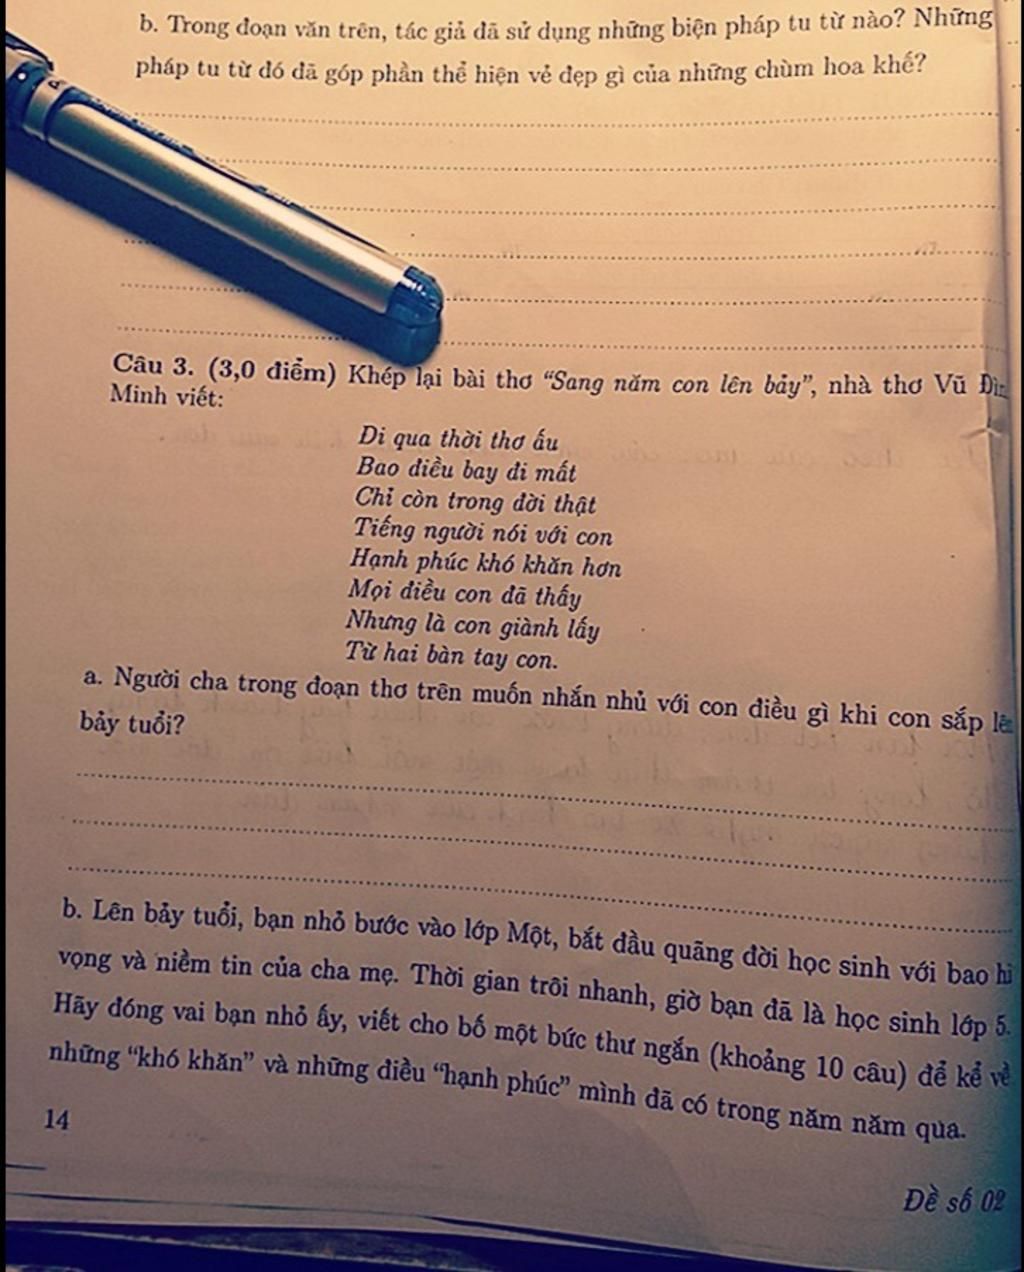 b. Trong đoạn văn trên, tác giả đã sử dụng những biện pháp tu từ nào? Những
pháp tu từ đó đã góp phần thể hiện vẻ đẹp gì của những chùm hoa khế?
Câu 3. (3,0 điểm) Khép lại bài thơ “Sang năm con lên bảy”, nhà thơ Vũ
Minh viết:
Đi qua thời thơ ấu
Bao điều bay đi mất
Chỉ còn trong đời thật
Tiếng người nói với con
Hạnh phúc khó khăn hơn
Mọi điều con đã thấy
Nhưng là con giành lấy
Từ hai bàn tay con.
a. Người cha trong đoạn thơ trên muốn nhắn nhủ với con điều gì khi con sắp
bảy tuổi?
b. Lên bảy tuổi, bạn nhỏ bước vào lớp Một, bắt đầu quãng đời học sinh với bao hi
vọng và niềm tin của cha mẹ. Thời gian trôi nhanh, giờ bạn đã là học sinh lớp 5.
Hãy đóng vai bạn nhỏ ấy, viết cho bố một bức thư ngắn (khoảng 10 câu) để kể về
những “khó khăn” và những điều “hạnh phúc” mình đã có trong năm năm qua.
14
Đề số 02